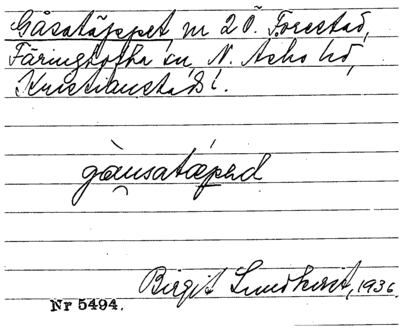 Gåsatäppet, nr 2 Ö. Forestad,
Färingtofta sn, N. Åsbo hd,
Kristianstads l.
gåusatæpəd
Birgit Lundkvist, 1936.
Nr 5494.